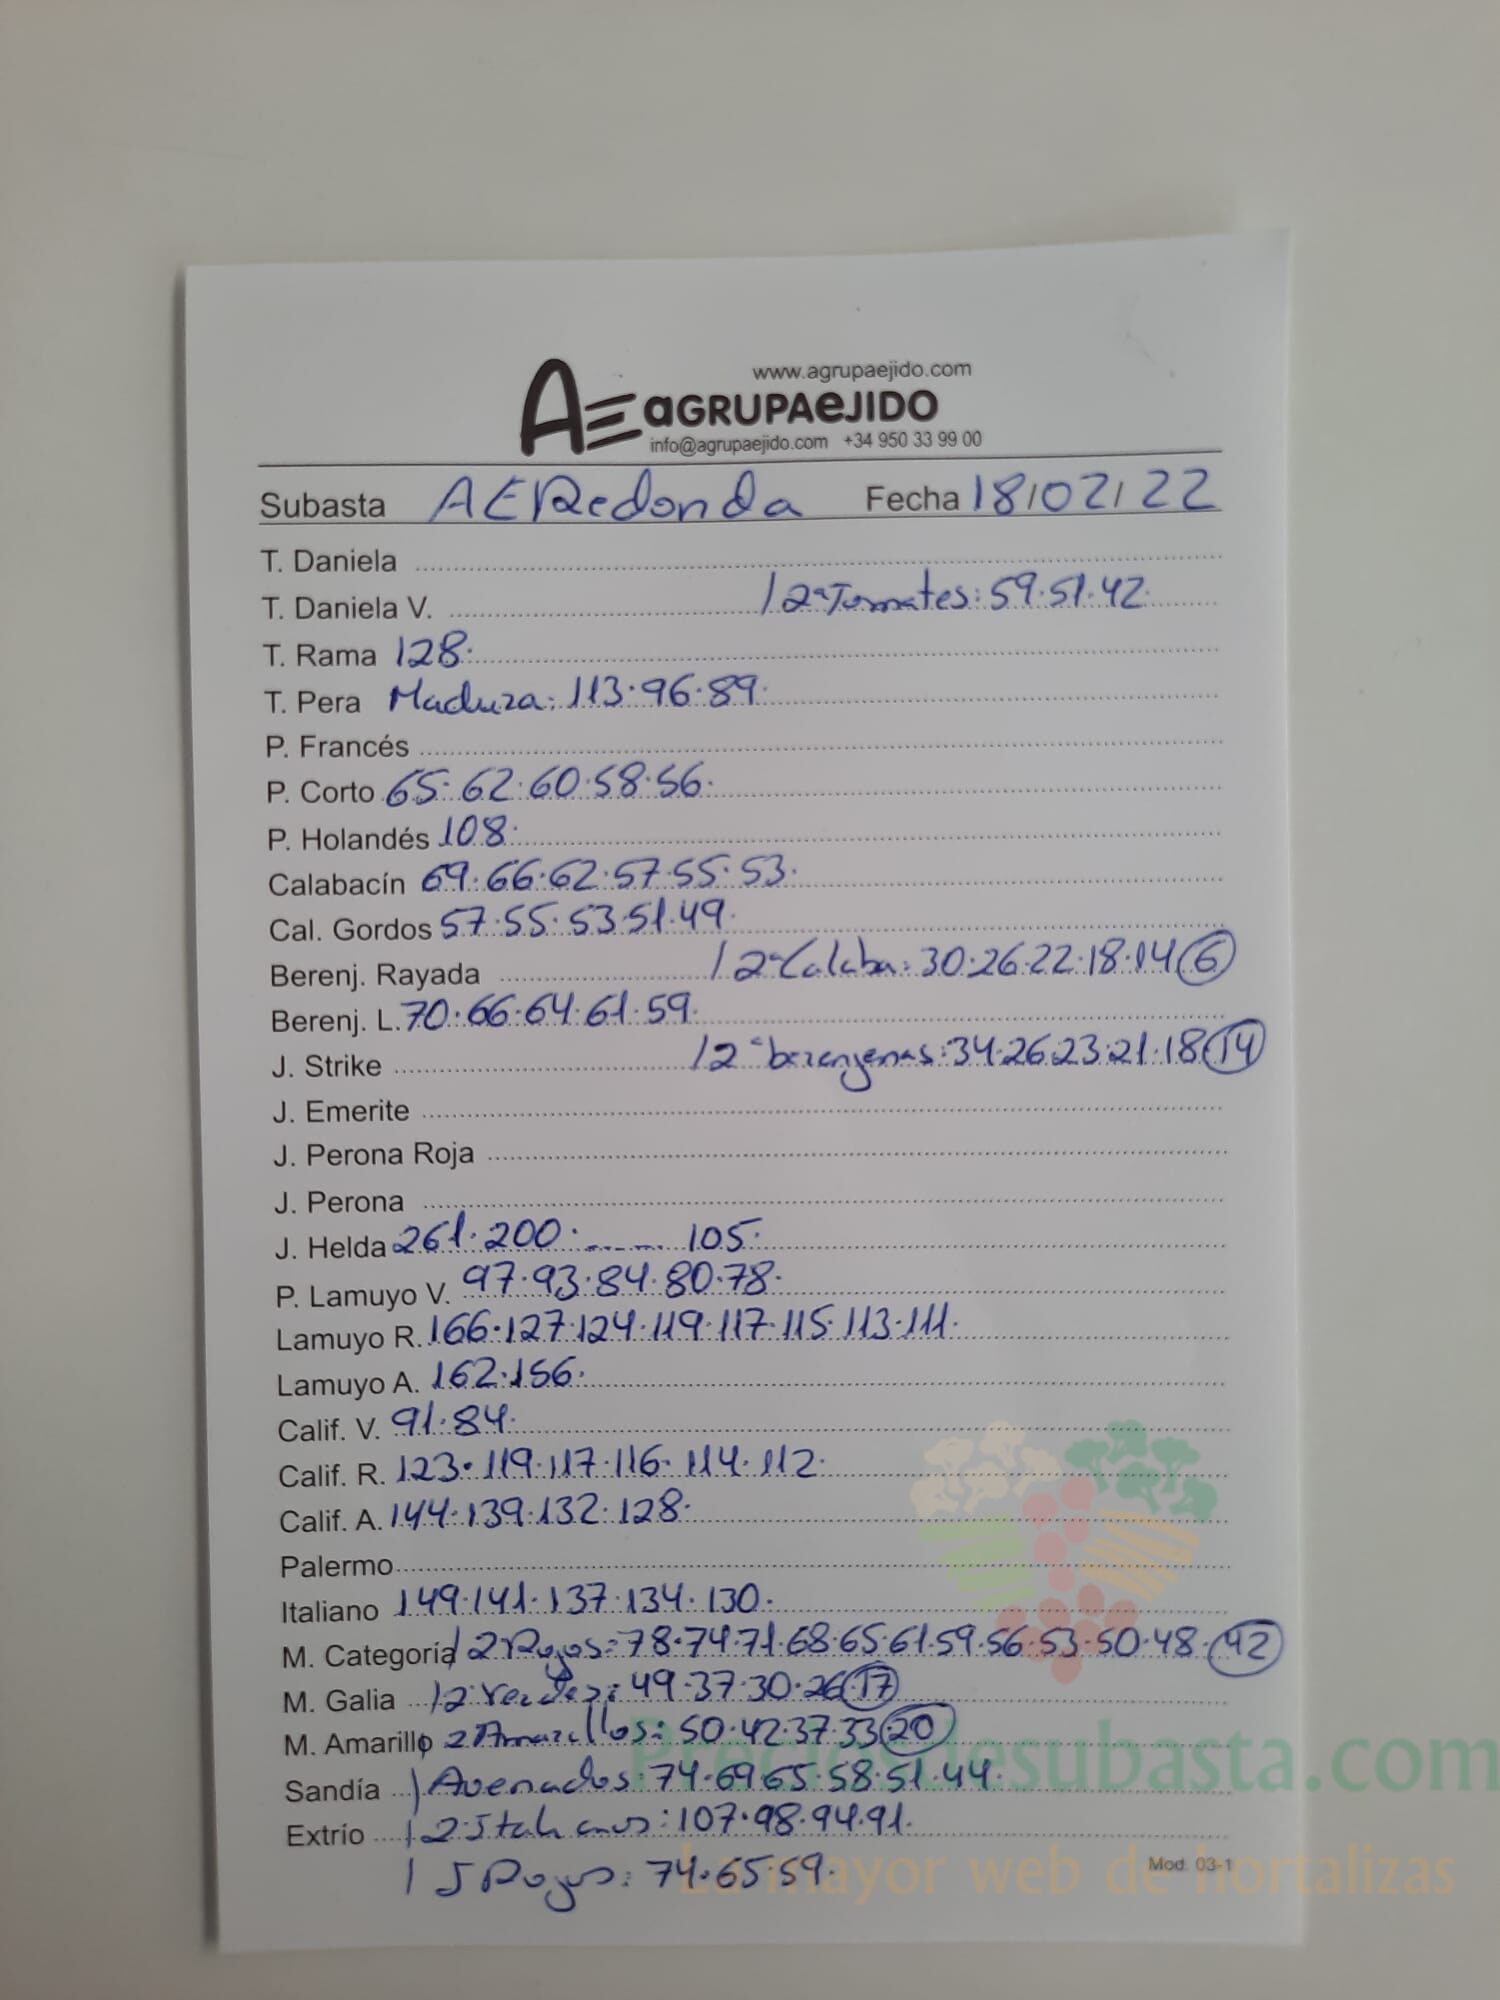 www.agrupaejido.com
AE AGRUPAEJIDO
info@agrupaejido.com +34 950 33 99 00
Subasta AERedonda Fecha 18/02/22
T. Daniela
T. Daniela V. / 2ª Tomates: 59.51.42
T. Rama 128.
T. Pera Madura: 113.96.89.
P. Francés
P. Corto 65.62.60.58.56.
P. Holandés 108.
Calabacín 69.66.62.57.55.53.
Cal. Gordos 57.55.53.51.49.
Berenj. Rayada / 2ª Calaba: 30.26.22.18.14 6
Berenj. L. 70.66.64.61.59.
J. Strike / 2ª berenjenas: 34.26.23.21.18. 14
J. Emerite
J. Perona Roja
J. Perona
J. Helda 261.200. ...... 105.
P. Lamuyo V. 97.93.84.80.78.
Lamuyo R. 166.127.124.119.117.115.113.111.
Lamuyo A. 162.156.
Calif. V. 91.84.
Calif. R. 123.119.117.116.114.112.
Calif. A. 144.139.132.128.
Palermo
Italiano 149.141.137.134.130.
M. Categoría / 2 Rojos: 78.74.71.68.65.61.59.56.53.50.48. 42
M. Galia / 2 Verdes: 49.37.30.26 17
M. Amarillo 2 Amarillos: 50.42.37.33 20
Sandía / Avenados: 74.69.65.58.51.44.
Extrío / 2 Italianos: 107.98.94.91.
/ J Rojos: 74.65.59.
Mod. 03-1
Preciosdesubasta.com
La mayor web de hortalizas